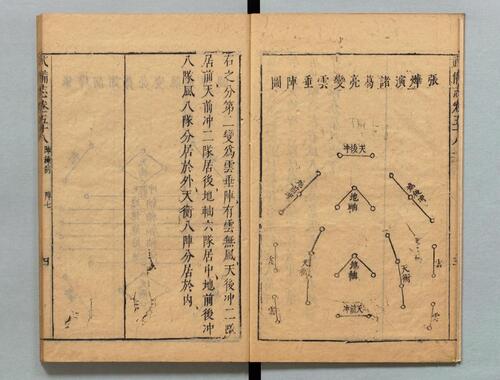 張燁演諸葛亮變雲垂陣圖
天後冲
地軸
地軸
天衡
天衡
天前冲
雲
雲
右之分第二變爲雲垂陣有雲無風天後冲二隊
居前天前冲二隊居後地軸六隊居中地前後冲
八隊風八隊分居於外天衡八陣分居於內
武備志卷五十八
陣練制
陣七
四